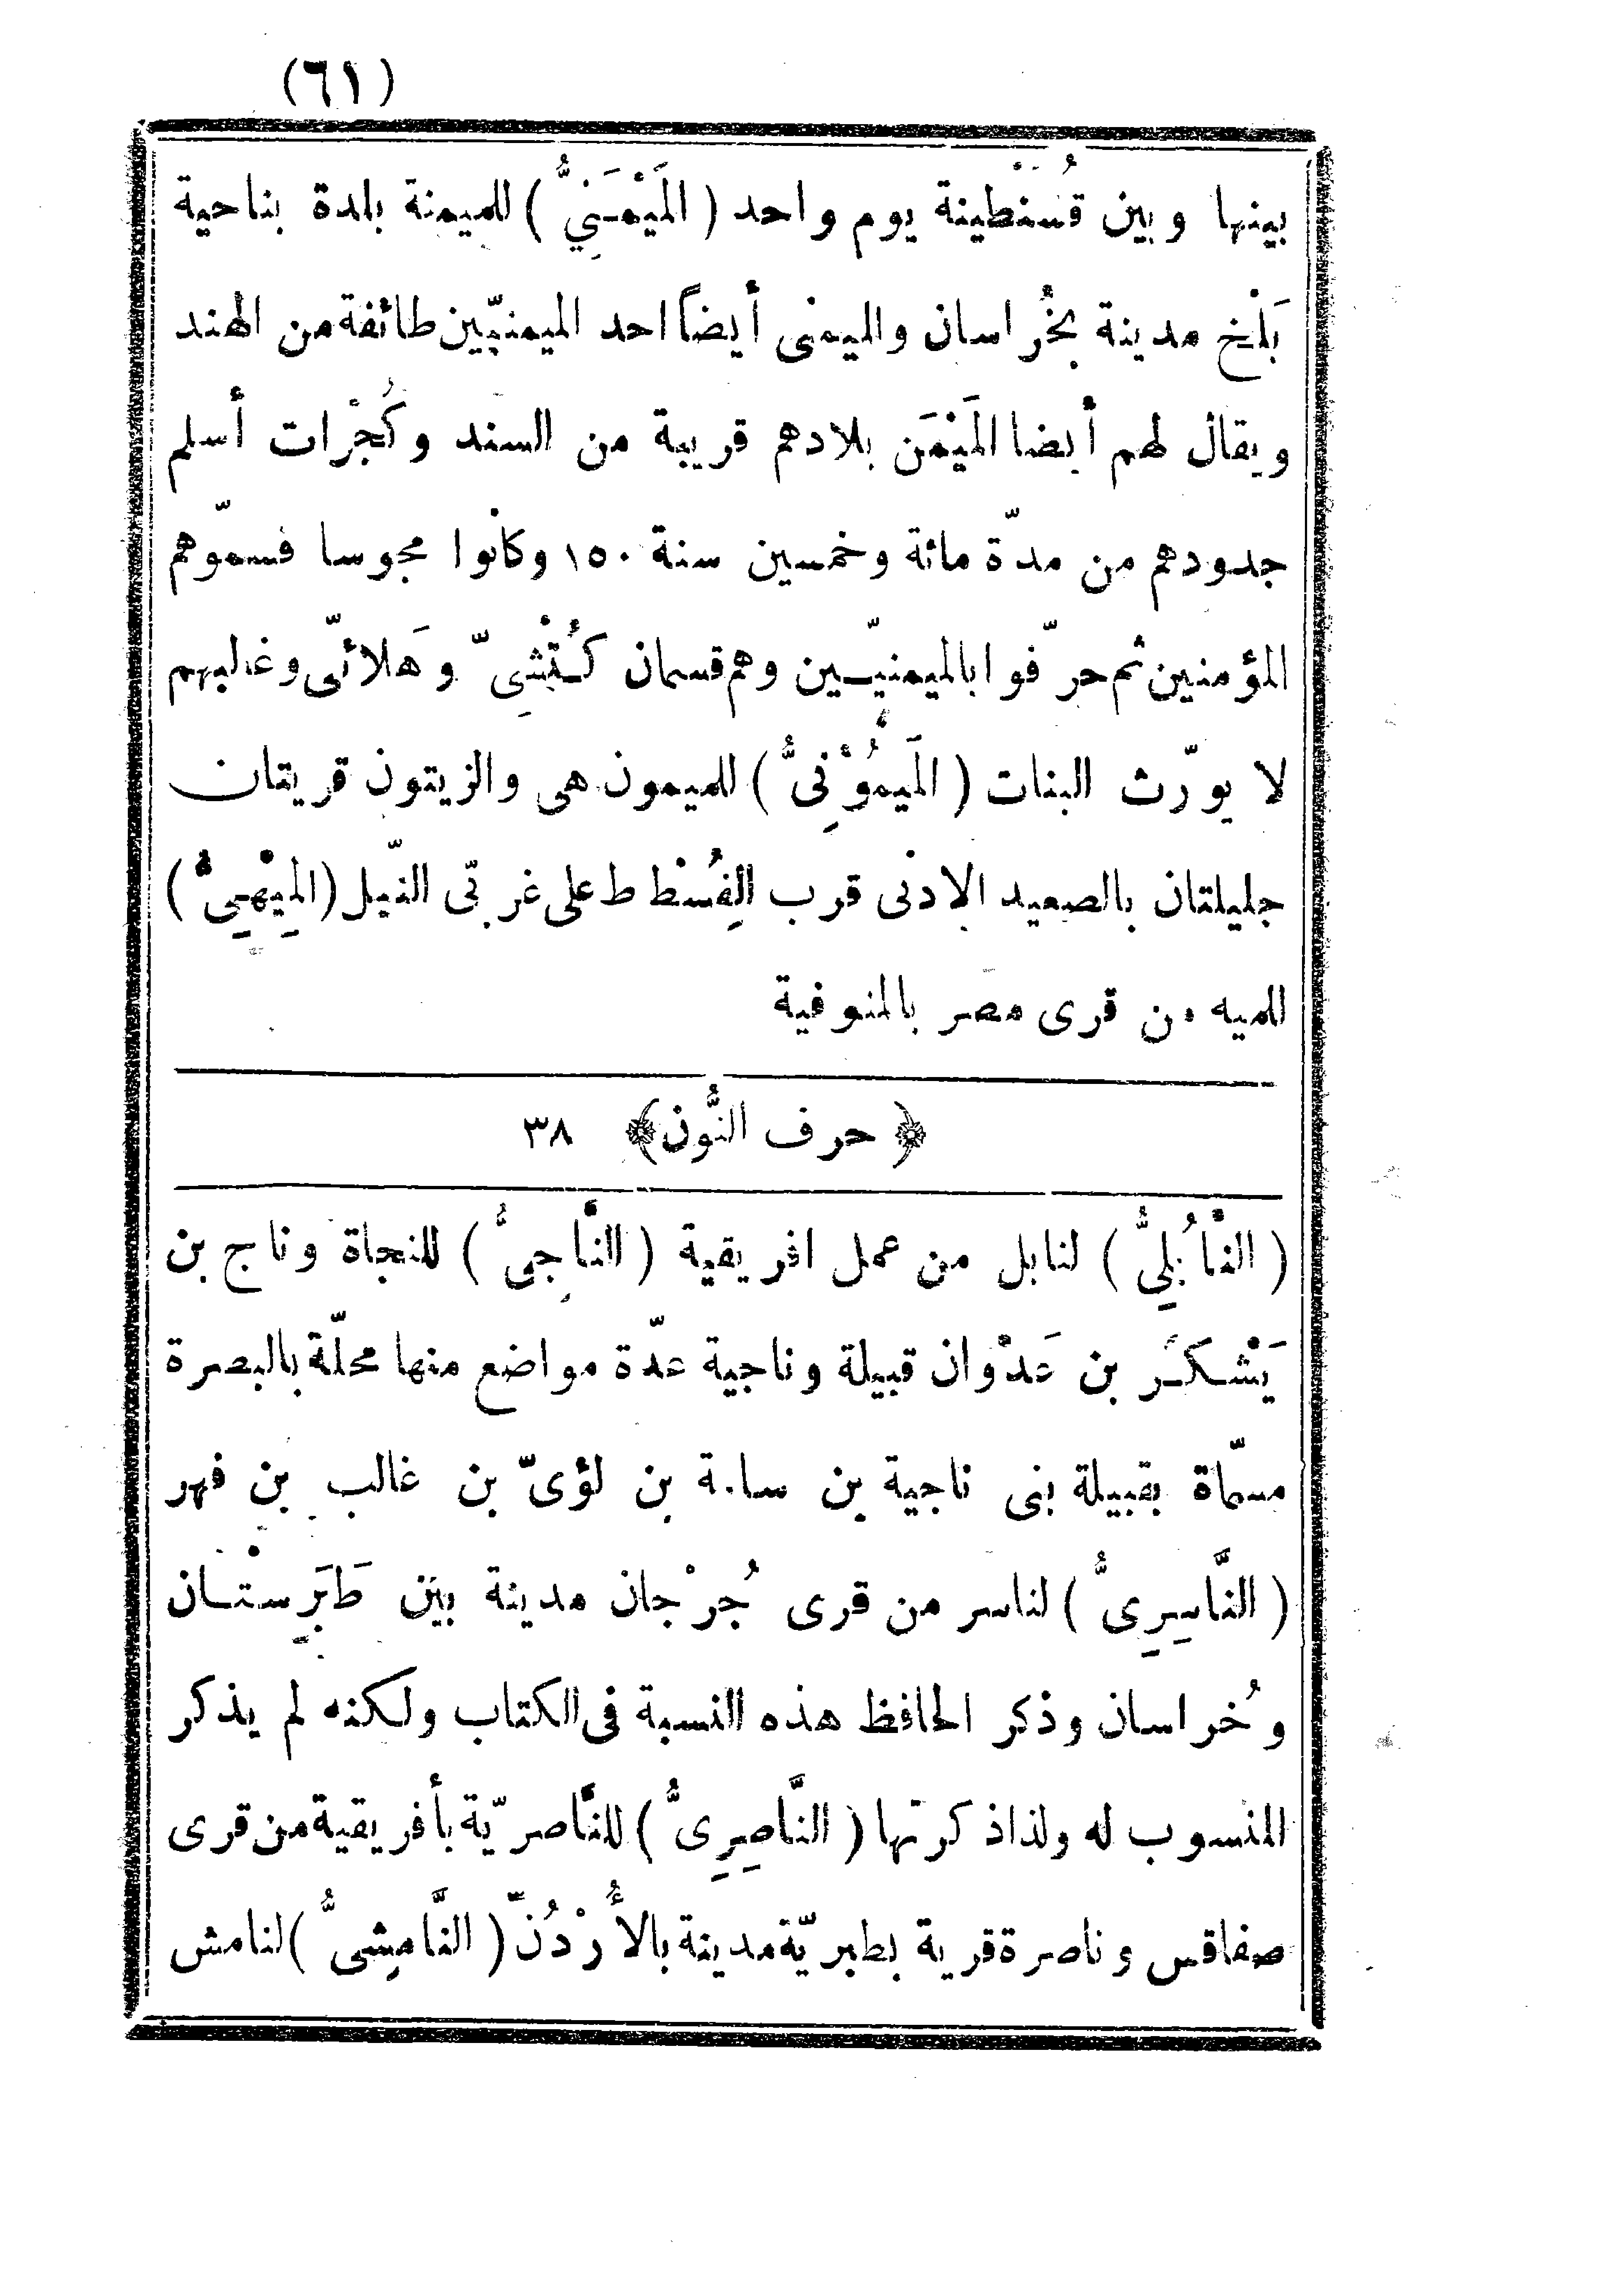 (٦١)
بينها وبين قُسَنْطِينة يوم واحد (المَيْمَنِيُّ) للميمنة بلدة بناحية
بَلْخ مدينة بخُراسان والميمنى أيضاً احد الميمنيّين طائفة من الهند
ويقال لهم أيضا المَيْمَن بلادهم قريبة من السند وكُجْرات أسلم
جدودهم من مدّة مائة وخمسين سنة ١٥٠ وكانوا مجوسا فسموّهم
المؤمنين ثم حرّفوا بالميمنيّـين وهم قسمان كُتْشِىّ وهَلائىّ وغالبهم
لا يورّث البنات (المَيْمُوْنِىُّ) للميمون هى والزيتون قريتان
جليلتان بالصعيد الادنى قرب الفُِسْطاط على غربّى النّيل (المِيْهِىُّ)
للميه من قرى مصر بالمنوفية
﴿حرف النُّون﴾ ٣٨
(النَّابُلِىُّ) لنابل من عمل افريقية (النَّاجِىُّ) للنجاة وناج بن
يَشْـكُـر بن عَدْوان قبيلة وناجية عدّة مواضع منها محلّة بالبصرة
مسمّاة بقبيلة بنى ناجية بن سامة بن لؤىّ بن غالب بن فهر
(النَّاسِرِىُّ) لناسر من قرى جُرْجان مدينة بين طَبَرِسْتـان
وخُراسان وذكر الحافظ هذه النسبة فى الكتاب ولكنه لم يذكر
المنسوب له ولذا ذكرتها (النَّاصِرِىُّ) للنَّاصريّة بأفريقية من قرى
صفاقس وناصرة قرية بطبريّة مدينة بالأُرْدُنّ (النَّامِشِىُّ) لنامش